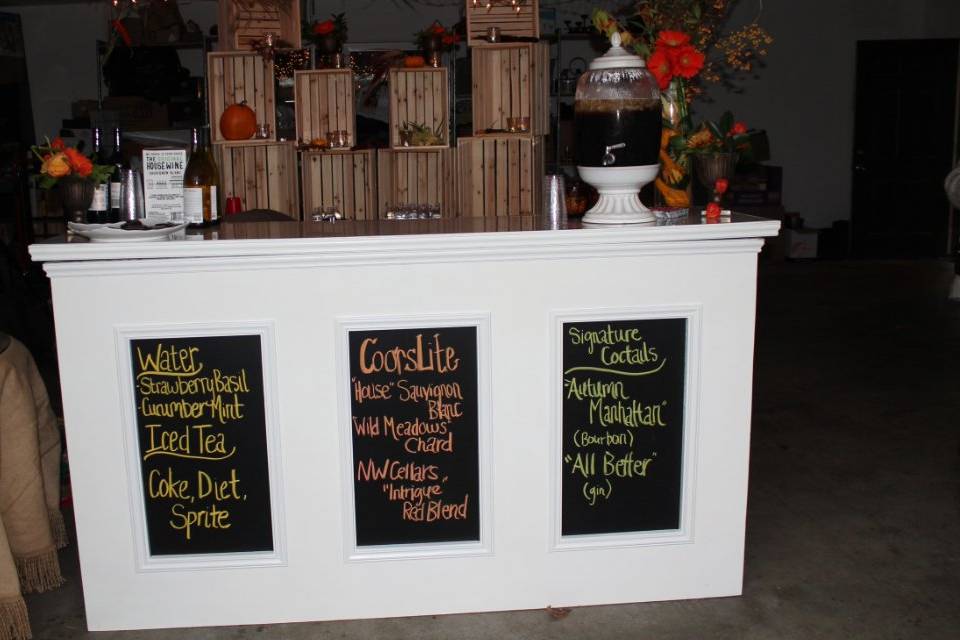 THE ORIGINAL
HOUSE WINE
SAUVIGNON BLANC
Water
-Strawberry Basil
-Cucumber Mint
Iced Tea
Coke, Diet,
Sprite
CoorsLite
"House" Sauvignon
Blanc
"Wild Meadows"
Chard
NW Cellars
"Intrigue"
Red Blend
Signature
Coctails
"Autumn
Manhattan"
(Bourbon)
"All Better"
(gin)